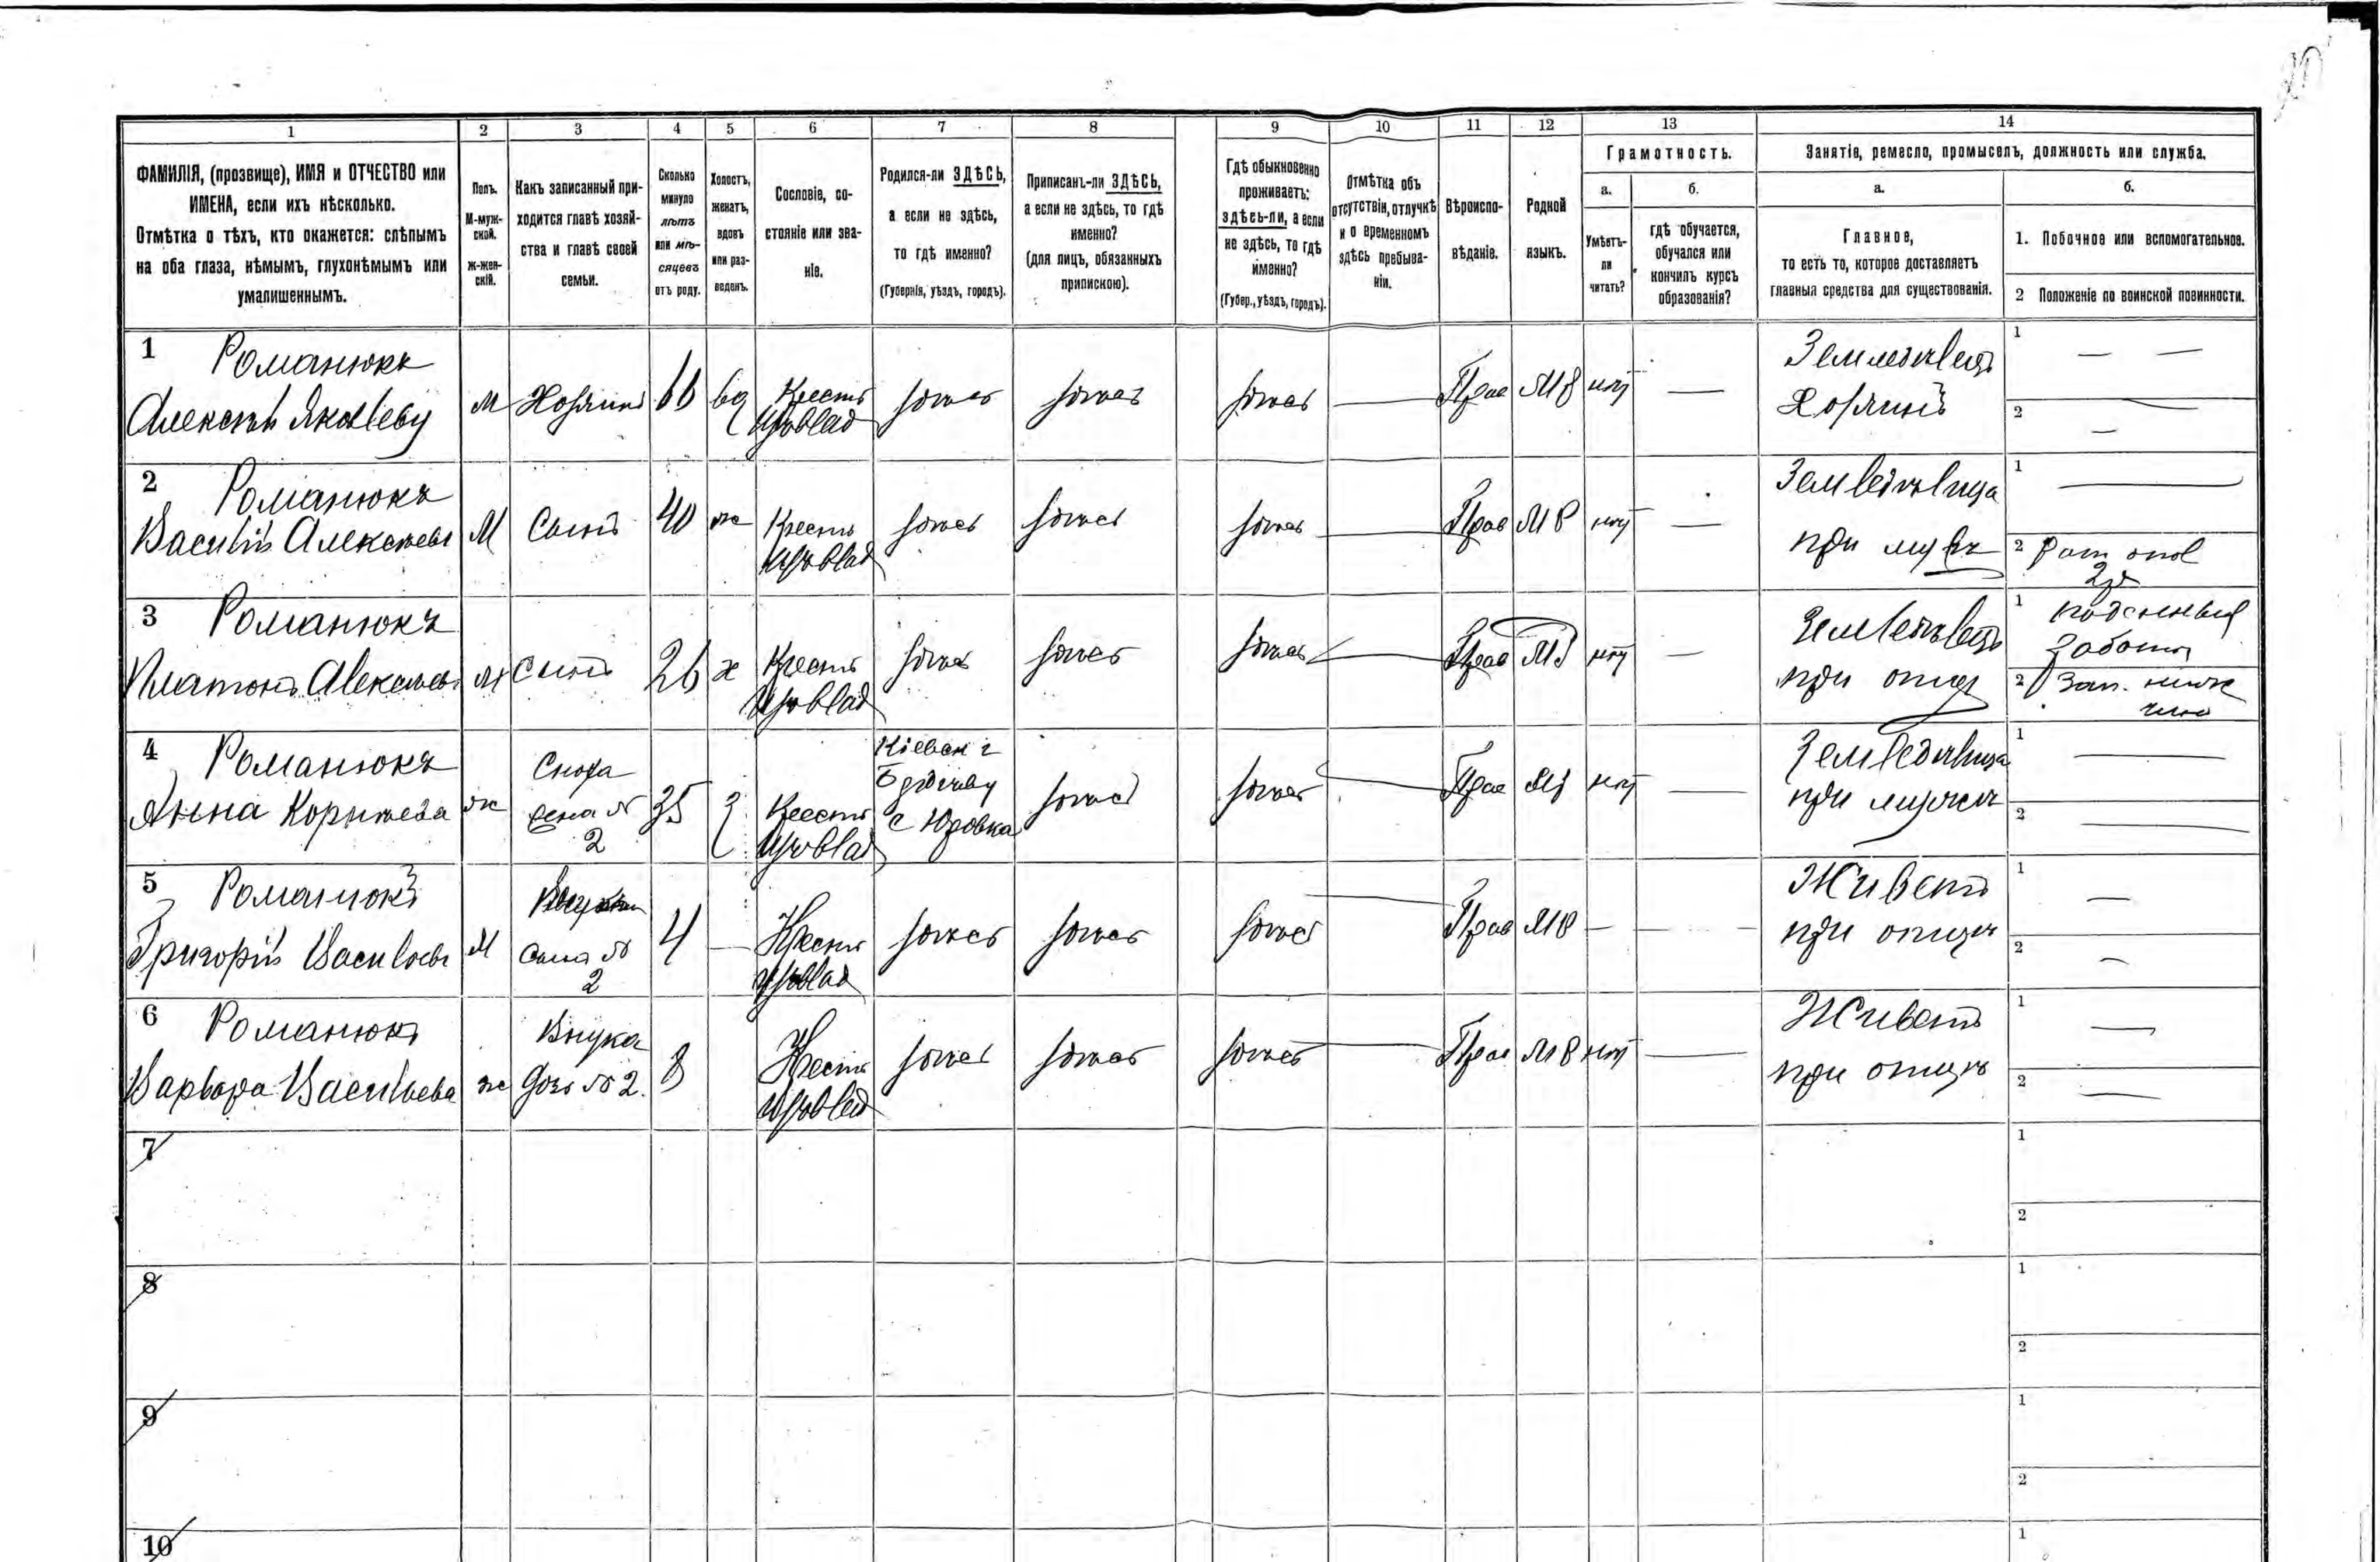 1
2
3
4
5
6
7
8
9
10
11
12
13
14
ФАМИЛІЯ, (прозвище), ИМЯ и ОТЧЕСТВО или
ИМЕНА, если ихъ нѣсколько.
Отмѣтка о тѣхъ, кто окажется: слѣпымъ
на оба глаза, нѣмымъ, глухонѣмымъ или
умалишеннымъ.
Полъ.
М-муж-
ской.
ж-жен-
скій.
Какъ записанный при-
ходится главѣ хозяй-
ства и главѣ своей
семьи.
Сколько
минуло
лѣтъ
или мѣ-
сяцевъ
отъ роду.
Холостъ,
женатъ,
вдовъ
или раз-
веденъ.
Сословіе, со-
стояніе или зва-
ніе.
Родился-ли ЗДѢСЬ,
а если не здѣсь,
то гдѣ именно?
(Губернія, уѣздъ, городъ).
Приписанъ-ли ЗДѢСЬ,
а если не здѣсь, то гдѣ
именно?
(для лицъ, обязанныхъ
припискою).
Гдѣ обыкновенно
проживаетъ:
здѣсь-ли, а если
не здѣсь, то гдѣ
именно?
(Губер., уѣздъ, городъ).
Отмѣтка объ
отсутствіи, отлучкѣ
и о временномъ
здѣсь пребыва-
ніи.
Вѣроиспо-
вѣданіе.
Родной
языкъ.
Грамотность.
а.
Умѣетъ-
ли
читать?
б.
гдѣ обучается,
обучался или
кончилъ курсъ
образованія?
Занятіе, ремесло, промыселъ, должность или служба.
а.
Главное,
то есть то, которое доставляетъ
главныя средства для существованія.
б.
1. Побочное или вспомогательное.
2 Положеніе по воинской повинности.
1 Романюкъ
Алексѣй Яковлевъ
м
Хозяинъ
66
вд
Крестъ
здѣсь
здѣсь
здѣсь
Прав
нѣт
Хозяинъ
1
2
2 Романюкъ
Василій Алексѣевъ
м
Сынъ
40
ж
Крестъ
здѣсь
здѣсь
здѣсь
Прав
нѣт
при
1
2
3 Романюкъ
Платонъ Алексѣев
м
Сынъ
26
х
Крестъ
здѣсь
здѣсь
здѣсь
Прав
нѣт
при отцѣ
1
2 Зап. ниж
чин
4 Романюкъ
Анна Корнѣева
ж
Сноха
жена №
2
35
з
Крестъ
Кіевск г
с Юровка
здѣсь
здѣсь
Прав
нѣт
при мужѣ
1
2
5 Романюкъ
Григорій Васильевъ
м
сынъ №
2
4
Крестъ
здѣсь
здѣсь
здѣсь
Прав
Живетъ
при отцѣ
1
2
6 Романюкъ
Варвара Васильева
ж
Внука
дочь № 2.
8
Крестъ
здѣсь
здѣсь
здѣсь
Прав
нѣт
Живетъ
при отцѣ
1
2
7
1
2
8
1
2
9
1
2
10
1